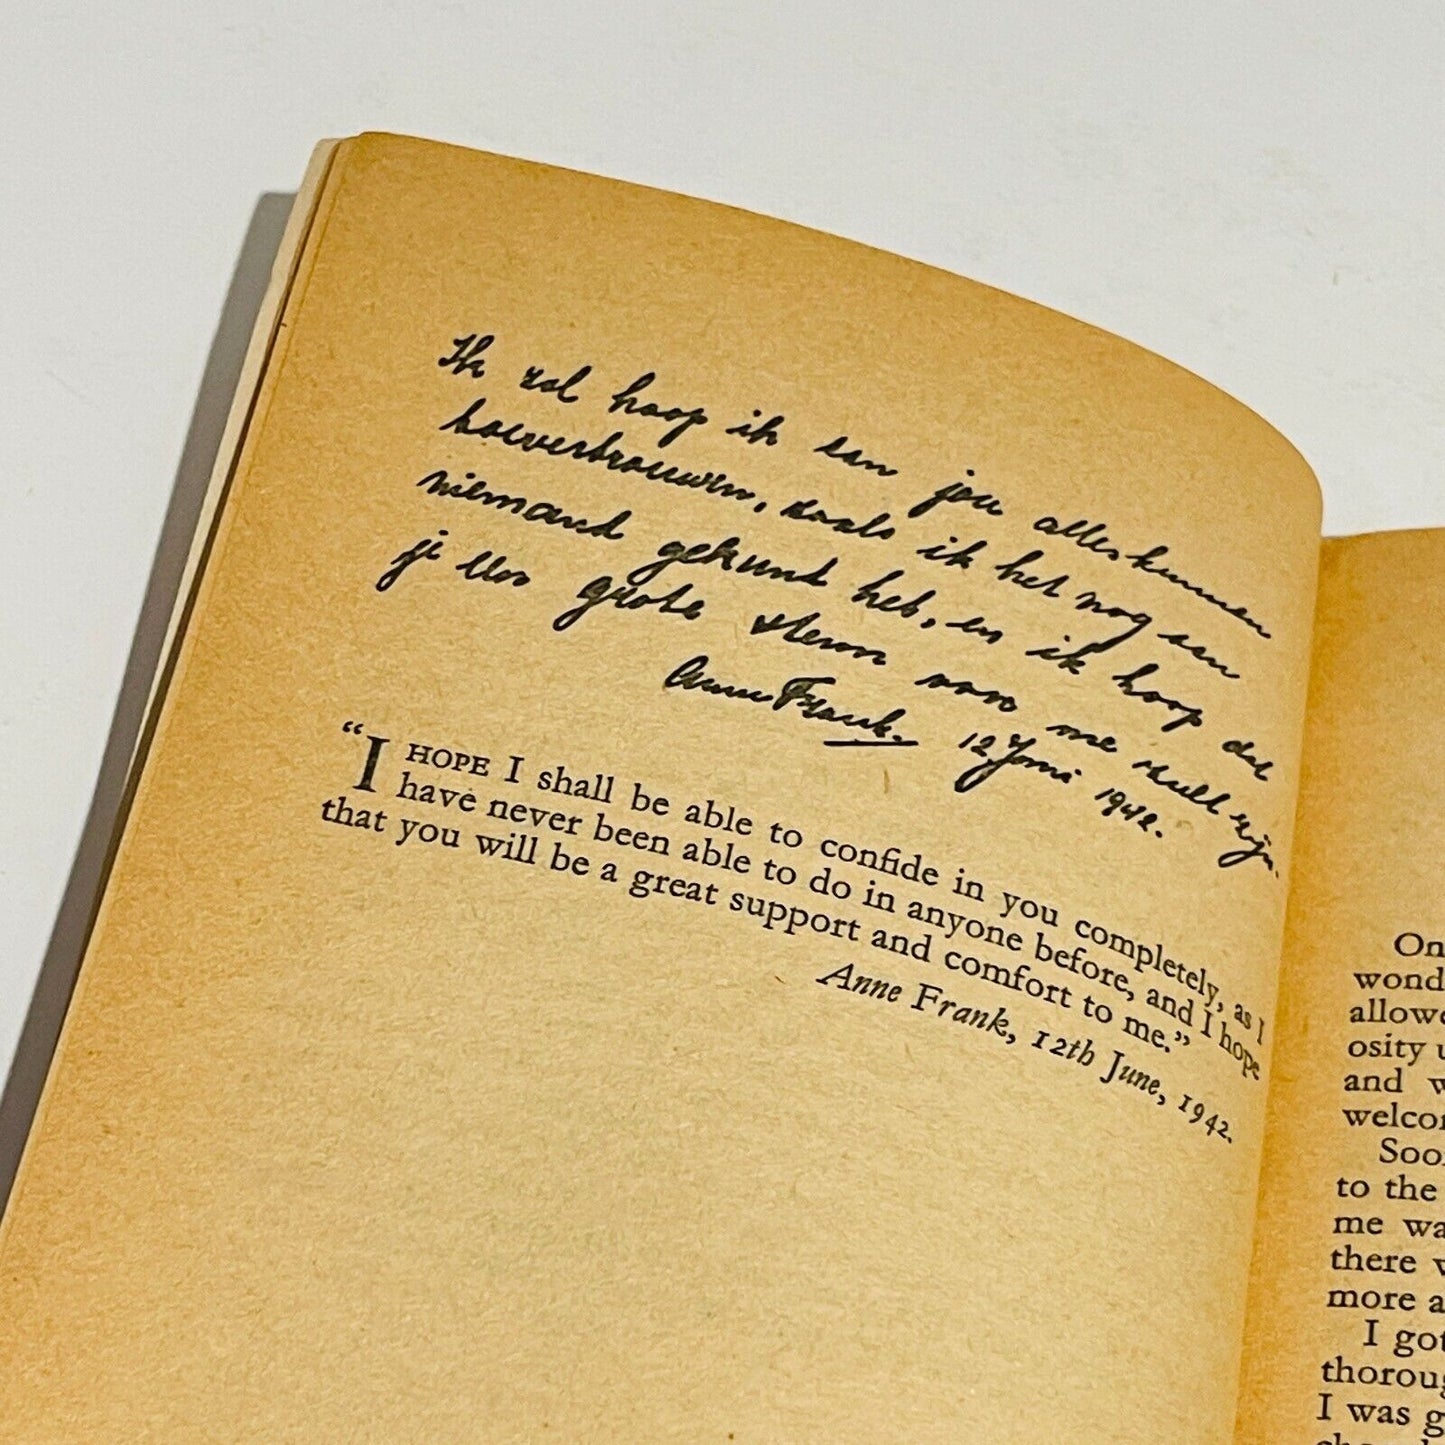 Ik zal hoop ik aan jou alles kunnen
toevertrouwen, zoals ik het nog aan
niemand gekund heb, en ik hoop dat
je een grote steun voor me zult zijn.
Anne Frank. 12 Juni 1942.
“I HOPE I shall be able to confide in you completely, as I
have never been able to do in anyone before, and I hope
that you will be a great support and comfort to me.”
Anne Frank, 12th June, 1942.
On
wond
allowe
osity u
and w
welcon
Soon
to the
me wa
there w
more a
I got
thoroug
I was g